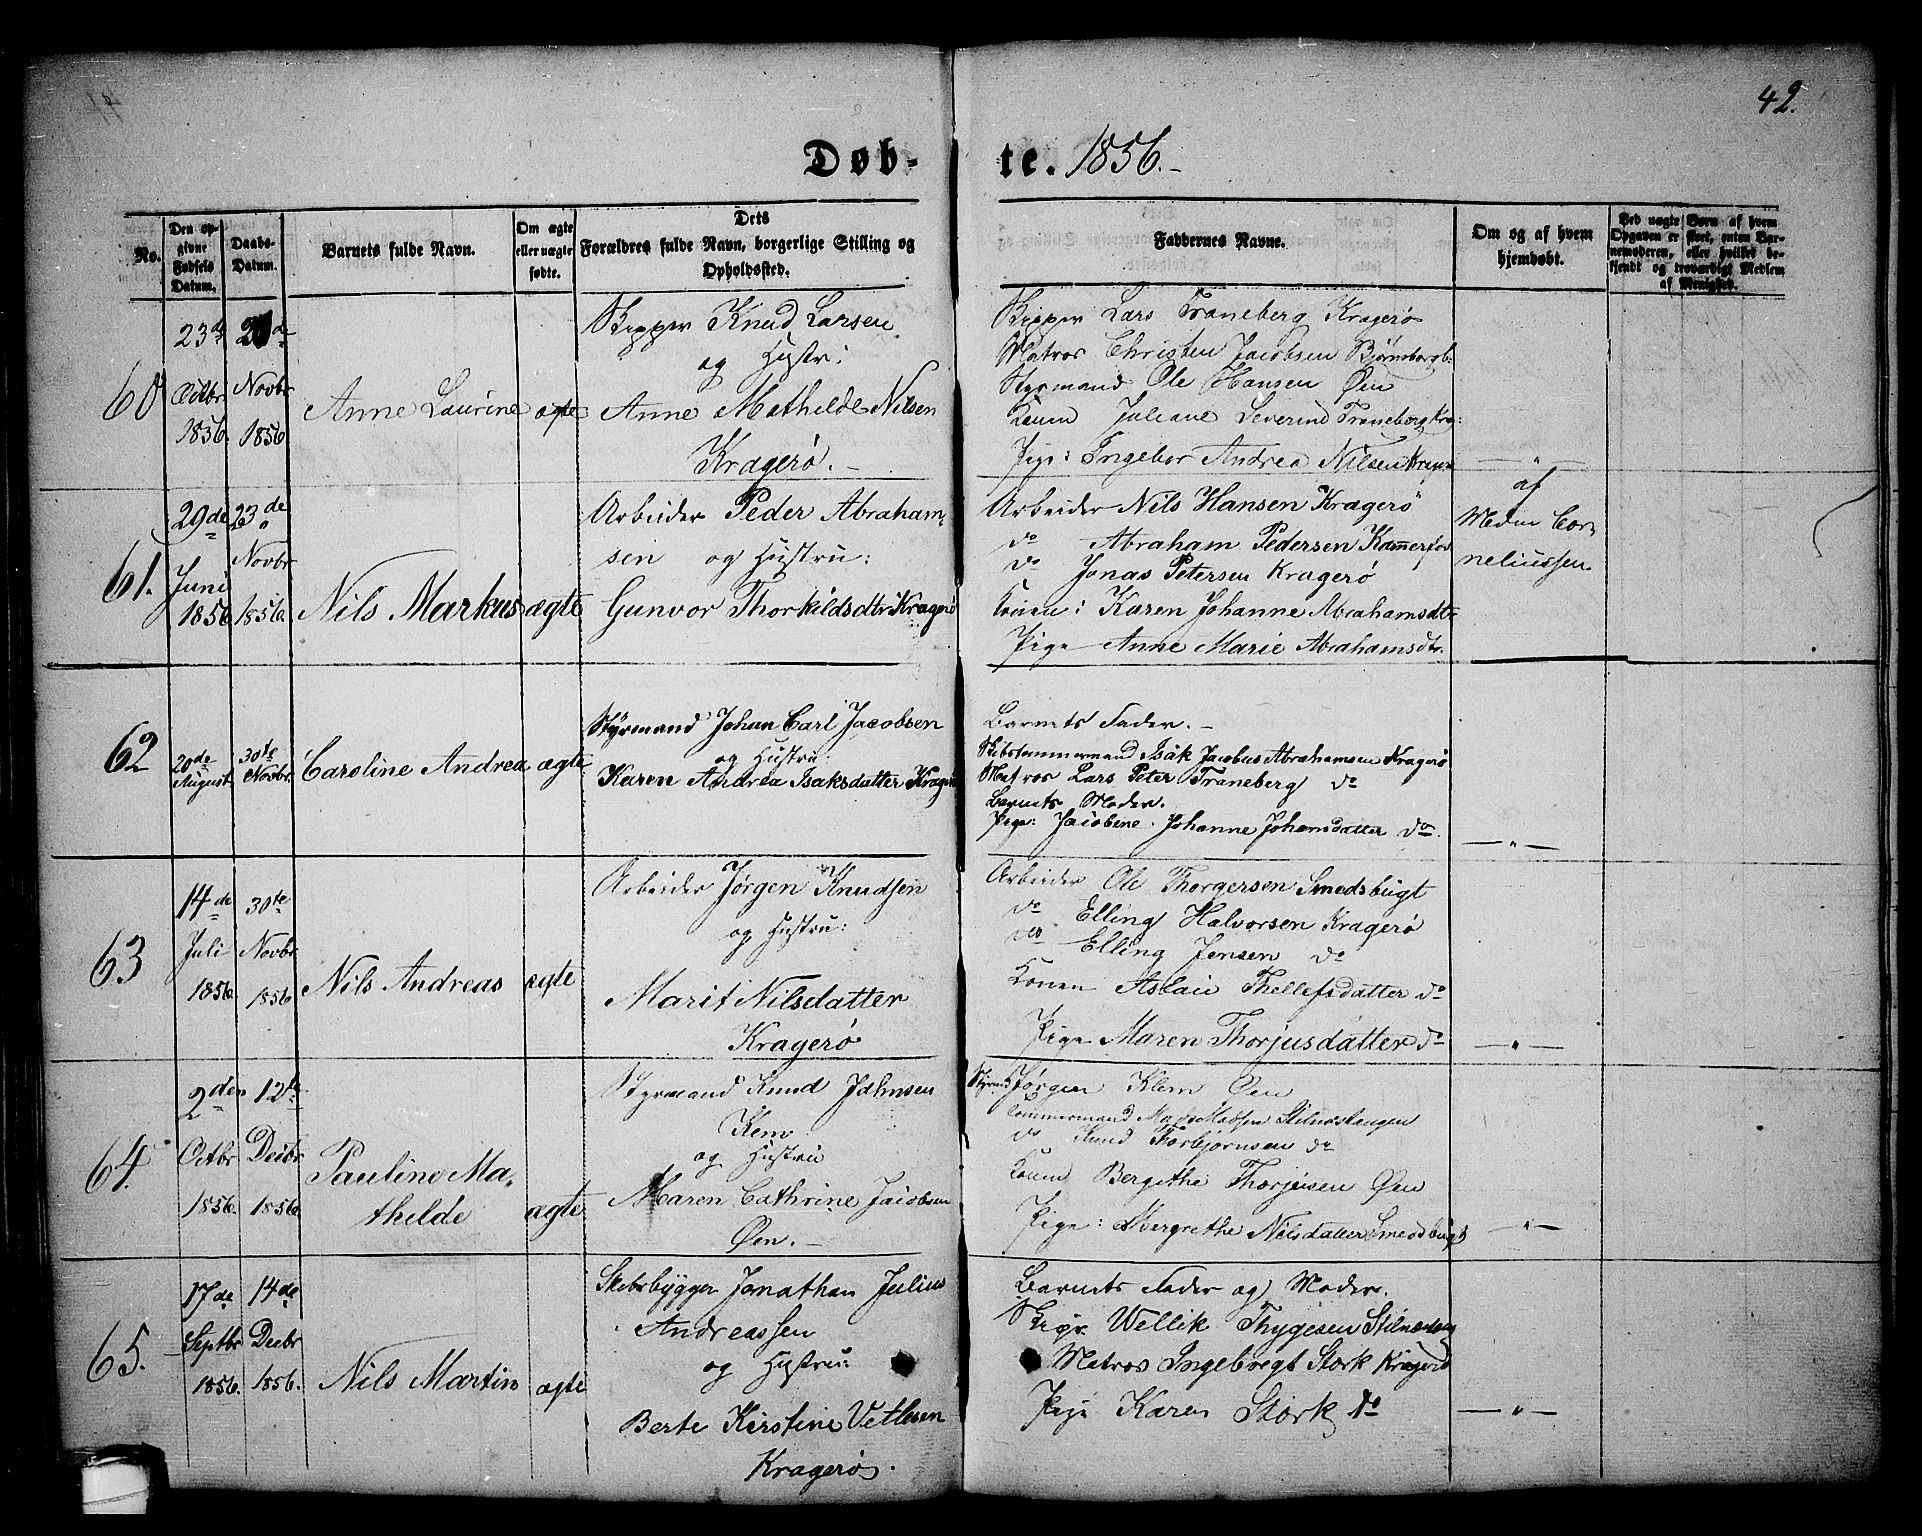 42.
Døb-te. 1856.-
No.
Den op-
givne
Fødsels
Datum.
Daabs-
Datum.
Barnets fulde Navn.
Om ægte
eller uægte
fødte.
Dets
Forældres fulde Navn, borgerlige Stilling og
Opholdssted.
Faddernes Navne.
Om og af hvem
hjemdøbt.
Ved uægte Børn af hvem
Opgaven er skeet, enten Bar-
nemoderen, eller hvilket be-
kjendt og troværdigt Medlem
af Menighed.
60
23de
Octbr
1856.
Novbr
1856.
Anne Laurine
ægte
Skipper Knud Larsen
og Hustr:
Anne Mathilde Nilsen
Kragerø.-
Skipper Lars Traneberg Kragerø
Matros Christen Jacobsen
Styrmand Ole Hansen Øen
Konen Juliane Severine Traneberg Kra:
Pige: Ingebor Andrea Nilsen Kragerø
— " —
61.
29de
Juni
1856
23de
Novbr
1856.
Nils Markus
ægte
Arbeider Peder Abraham-
sen og Hustru:
Gunvor Thorkildsdtr Kragerø
Arbeider Nils Hansen Kragerø
do Abraham Pedersen Kammerfos
do Jonas Petersen Kragerø
Konen: Karen Johanne Abrahamsdtr
Pige Anne Marie Abrahamsdtr.
af
Madm Cor-
neliussen
62
20de
August
30te
Novbr.
Caroline Andrea
ægte
Styrmand Johan Carl Jacobsen
og Hustru:
Karen Andrea Isaksdatter Kragerø
Barnets Fader.-
Skibstømmermand Isak Jacobus Abrahamsen Kragerø
Matros Lars Peter Traneberg do
Barnets Moder.
Pige: Jacobine Johanne Johansdatter do.
— " —
63
14de
Juli
1856.
30te
Novbr
1856
Nils Andreas
ægte
Arbeider Jørgen Knudsen
og Hustru:
Marit Nilsdatter
Kragerø
Arbeider Ole Thorgersen Smedsbugt
do Elling Halvorsen Kragerø
do Elling Jensen do
Konen Aslau Thellefsdatter do
Pige Maren Thorjusdatter do
— " —
64.
2den
Octbr
1856.
12te
Decbr
1856.
Pauline Ma-
thilde
ægte
Styrmand Knud Johnsen
Kem
og Hustru
Maren Cathrine Jacobsen
Øen.-
Styrmd Jørgen Klem Øen
Tømmermand Mads Madsen Stilnæstangen
do Knud Thorbjørnsen do
Konen Bergithe Thorjusen Øen
Pige: Margrethe Nilsdatter Smedsbugt
— " —
65.
17de
Septbr
1856.
14de
Decbr
1856.
Nils Martin
ægte
Skibsbygger Jonathan Julius
Andreassen
og Hustru:
Berte Kirstine Vetlesen
Kragerø.
Barnets Fader og Moder.
Skipr. Wellik Thygesen
Matros Ingebregt Stork Kragerø
Pige Karen Stork do
— " —